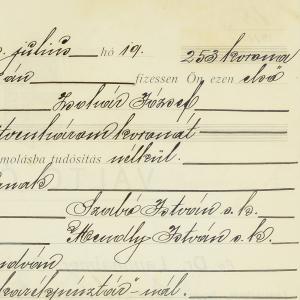 július hó 19. 253 korona
fizessen Ön ezen első
József
ötvenhárom koronát
molásba tudósítás nélkül.
nak
Szabó István s. k.
István s. k.
takarékpénztár"-nál.